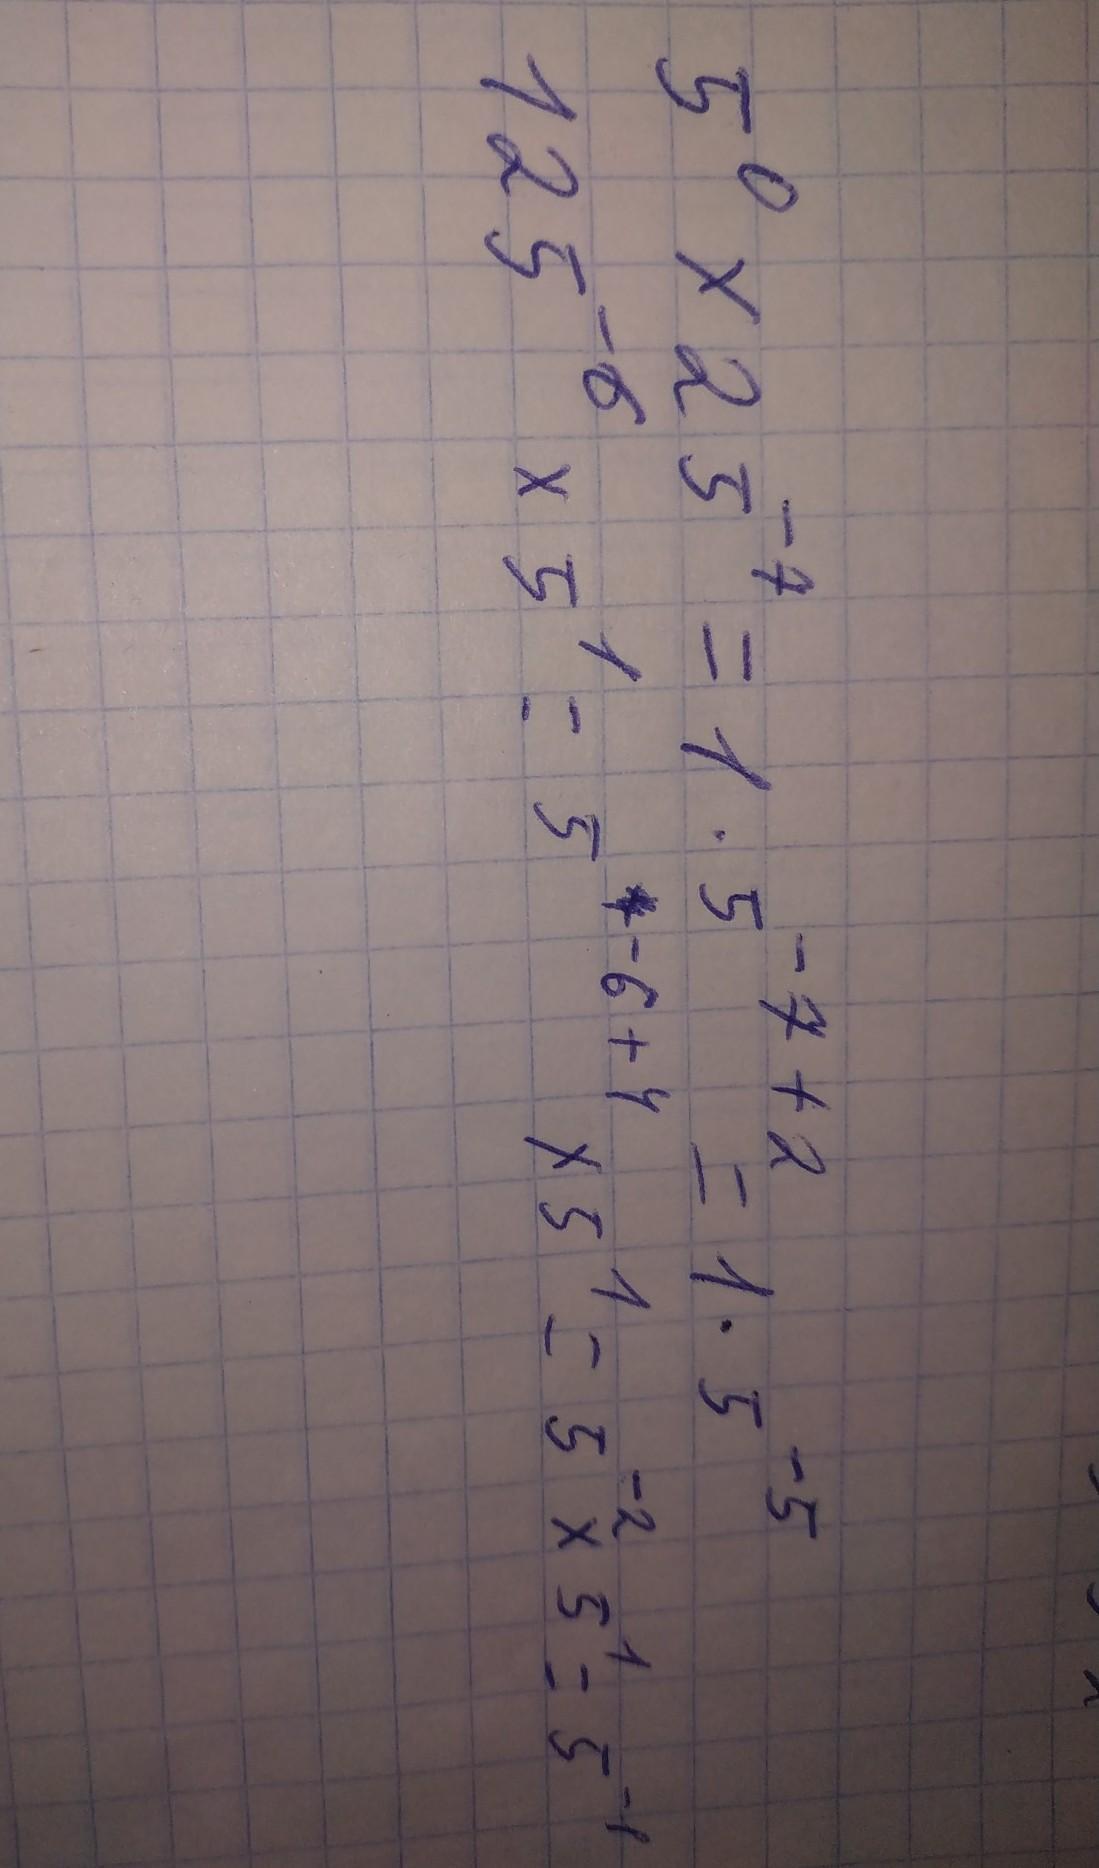 5⁰ × 25⁻⁷ = 1 · 5⁻⁷⁺² = 1 · 5⁻⁵
125⁻⁶ × 5¹ = 5⁻⁶⁺⁴ × 5¹ = 5⁻² × 5¹ = 5⁻¹